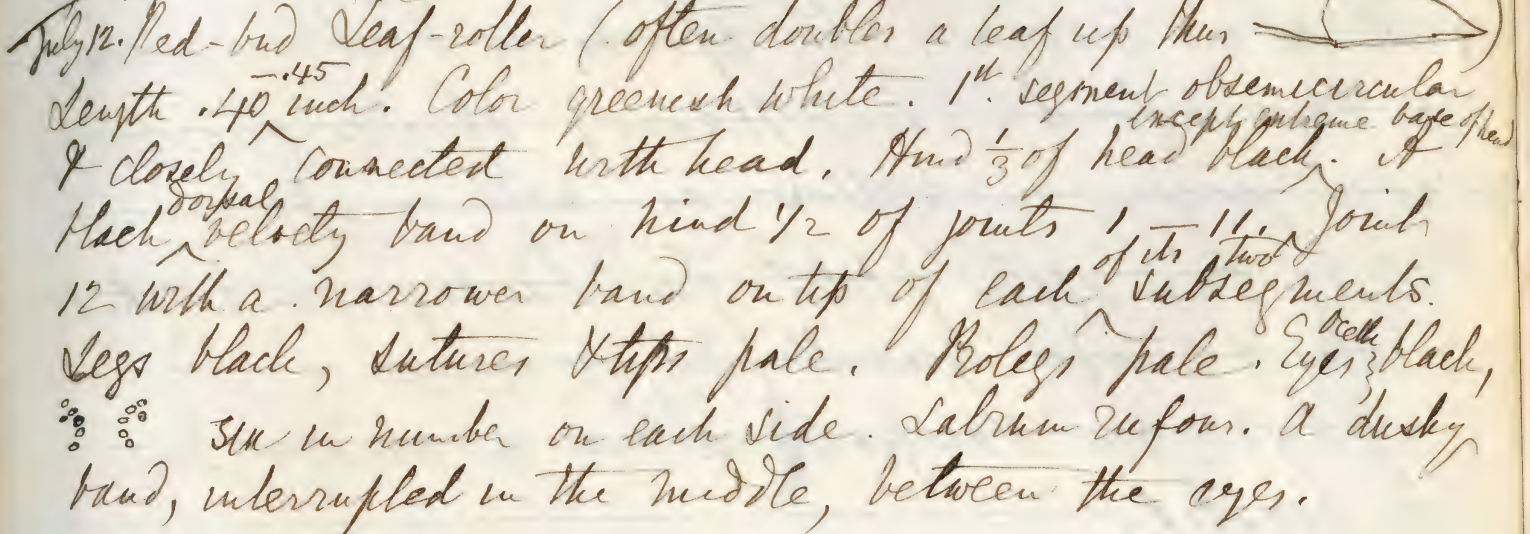 July 12. Red-bud Leaf-roller (often doubles a leaf up thus )
Length .40 —.45 inch. Color greenish white. 1st. segment obsemicircular
& closely connected with head. Hind 1/3 of head black except extreme base of head. A
black dorsal velvety band on hind 1/2 of joints 1 — 11. Joint
12 with a narrower band on tip of each of its two subsegments.
Legs black, sutures & tips pale. Prolegs pale. Eyes ocelli black,
six in number on each side. Labrum rufous. A dusky
band, interrupted in the middle, between the eyes.